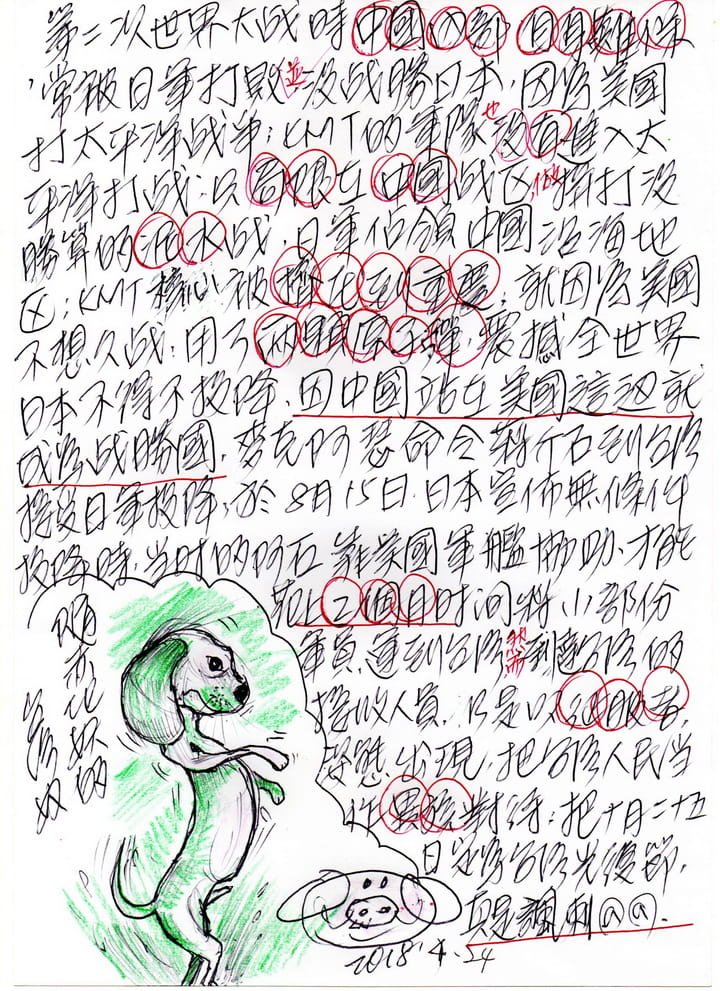 第二次世界大战時中國內部自身難保
,常被日軍打敗並没战勝日本,因為美國
打太平洋战争;KMT的軍隊也没有進入太
平洋打战;只 在中國战区,做 打没
勝算的 水战,日軍佔領中國沿海地
区;KMT核心被擠在到重慶;就因為美國
不想久战;用了兩顆原子彈,震撼全世界
日本不得不投降,因中國站在美國這边就
成為战勝國,麥克阿瑟命令蔣介石到台灣
接受日軍投降,於8月15日,日本宣佈無條件
投降時,当时的阿石靠美國軍艦协助,才能
2個月时间将小部份
軍員,運到台灣然而到達台灣的
接收人員,以是以征服者,
姿態出現,把台灣人民当
作異族對待;把十月二十五
日定為台灣光復節,
真是諷刺@@.
2018.4.24